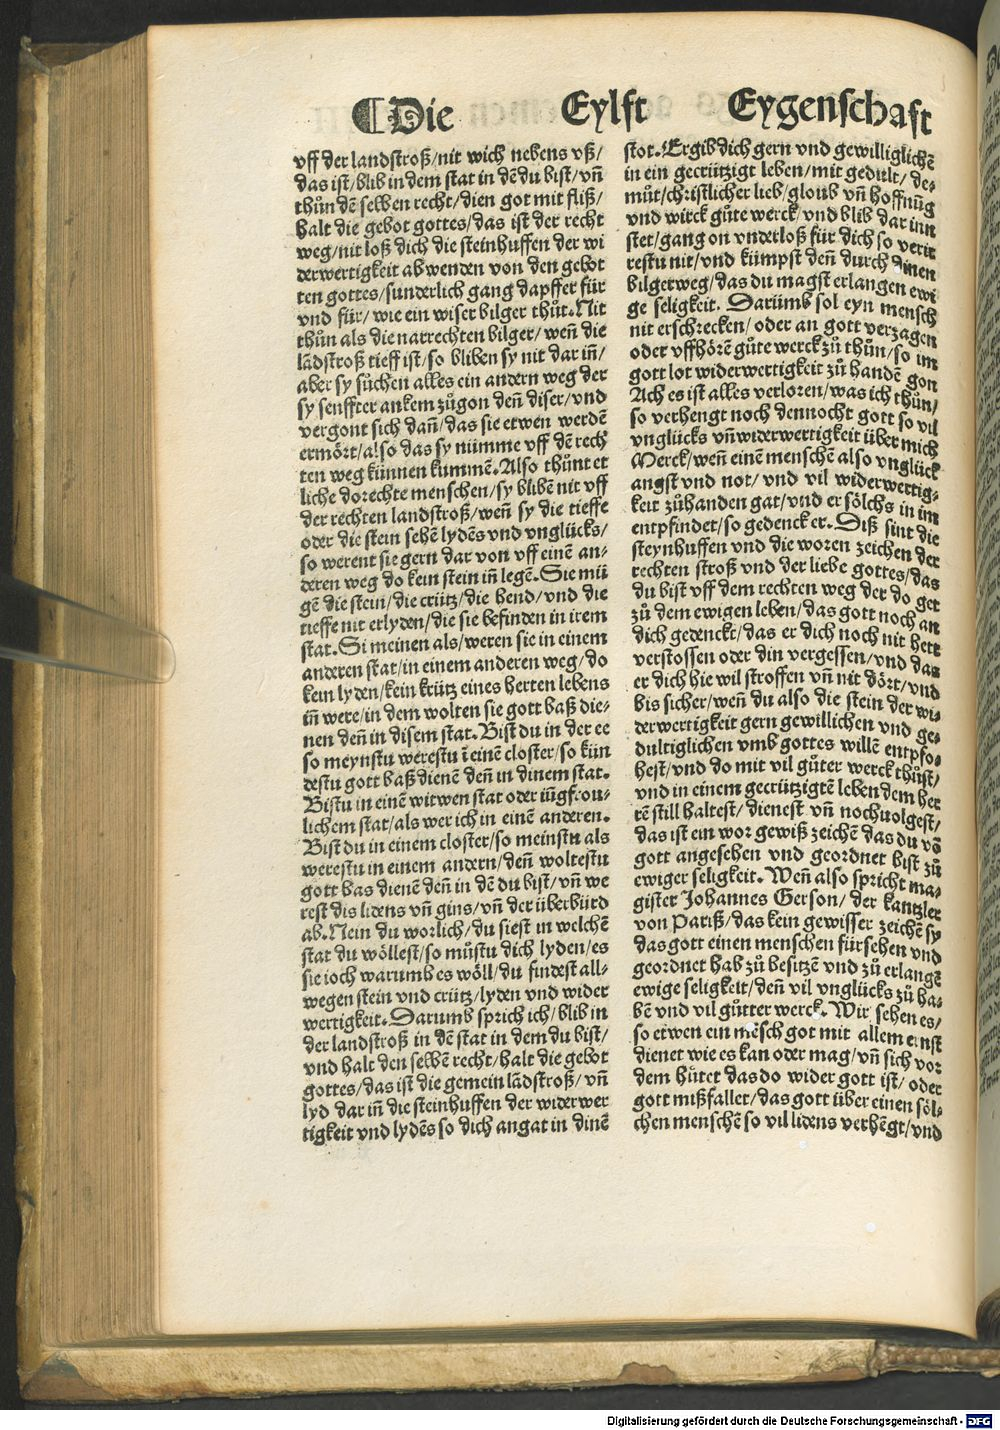 ¶ Die Eylft Eygenschaft
vff der landstroß/nit wich nebens vß/
das ist/blib in dem stat in dē du bist/vn̄
thůn dē selben recht/dien got mit fliß/
halt die gebot gottes/das ist der recht
weg/nit loß dich die steinhuffen der wi
derwertigkeit abwenden von den gebot
ten gottes/sunderlich gang dapffer für
vnd für/wie ein wiser bilger thůt. Nit
thůn als die narrechten bilger/wen̄ die
lādstroß tieff ist/so bliben sy nit dar in̄/
aber sy sůchen alles ein andern weg der
sy senffter ankem zůgon den̄ diser/vnd
vergont sich dan̄/das sie etwen werdē
ermört/also das sy nümme vff dē rech
ten weg künnen kummē. Also thůnt et
liche dorechte menschen/sy blibē nit vff
der rechten landstroß/wen̄ sy die tieffe
oder die stein sehē lydēs vnd vnglücks/
so werent sie gern dar von vff einē an-
deren weg do kein stein in̄ legē. Sie mü
gē die stein/die crütz/die hend/vnd die
tieffe nit erlyden/die sie befinden in irem
stat. Si meinen als/weren sie in einem
anderen stat/in einem anderen weg/do
kein lyden/kein krütz eines herten lebens
in̄ were/in dem wolten sie gott baß die-
nen den̄ in disem stat. Bist du in der ee
so meynstu werestu ī einē closter/so kün
destu gott baß dienē den̄ in dinem stat.
Bistu in einē witwen stat oder iūgfrou-
lichem stat/als wer ich in einē anderen.
Bist du in einem closter/so meinstu als
werestu in einem andern/den̄ woltestu
gott bas dienē den̄ in dē du bist/vn̄ we
rest dis lidens vn̄ gins/vn̄ der überbürd
ab. Nein du worlich/du siest in welchē
stat du wöllest/so můstu dich lyden/es
sie ioch warumb es wöll/du findest all-
wegen stein vnd crütz/lyden vnd wider
wertigkeit. Darumb sprich ich/blib in
der landstroß in dē stat in dem du bist/
vnd halt den selbē recht/halt die gebot
gottes/das ist die gemein lādstroß/vn̄
lyd dar in̄ die steinhuffen der widerwer
tigkeit vnd lydēs so dich angat in dinē
stot. Ergib dich gern vnd gewilliglichē
in ein gecrützigt leben/mit gedult/de-
můt/christlicher lieb/gloub vn̄ hoffnūg
vnd wirck gůte werck/vnd blib dar inn
stet/gang on vnderloß für dich so verir
restu nit/vnd kümpst den̄ durch dinen
bilgerweg/das du magst erlangen ewi
ge seligkeit. Darümb sol eyn mensch
nit erschrecken/oder an gott verzagen
oder vffhörē gůte werck zů thůn/so im
gott lot widerwertigkeit zů handē gon
Ach es ist alles verloren/was ich thůn/
so verhengt noch dennocht gott so vil
vnglücks vn̄ widerwertigkeit über mich
Merck/wen̄ einē menschē also vnglück
angst vnd not/vnd vil widerwertig-
keit zůhanden gat/vnd er sölchs in im
entpfindet/so gedenck er. Diß sint die
steynhuffen vnd die woren zeichen der
rechten stroß vnd der liebe gottes/das
du bist vff dem rechten weg der do get
zů dem ewigen leben/das gott noch an
dich gedenckt/das er dich noch nit hett
verstossen oder din vergessen/vnd das
er dich hie wil stroffen vn̄ nit dört/vnd
bis sicher/wen̄ du also die stein der wi-
derwertigkeit gern gewillichen vnd ge-
dultiglichen vmb gottes willē entpfo-
hest/vnd do mit vil gůter werck thůst/
vnd in einem gecrützigtē leben dem her
rē still haltest/dienest vn̄ nochuolgest/
das ist ein wor gewiß zeichē das du vō
gott angesehen vnd geordnet bist zů
ewiger seligkeit. Wen̄ also spricht ma-
gister Johannes Gerson/der kantzler
von Pariß/das kein gewisser zeichē sy
das gott einen menschen fürsehen vnd
geordnet hab zů besitzē vnd zů erlangē
ewige seligkeit/den̄ vil vnglücks zů ha-
bē vnd vil gůtter werck. Wir sehen es/
so etwen ein mēsch got mit allem ernst
dienet wie es kan oder mag/vn̄ sich vor
dem hůtet das do wider gott ist/oder
gott mißfallet/das gott über einen söl-
chen menschē so vil lidens verhēgt/vnd
Digitalisierung gefördert durch die Deutsche Forschungsgemeinschaft - DFG